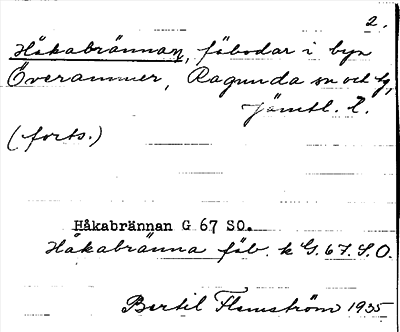 2.
Håkabrännan, fäbodar i byn
Överammer, Ragunda sn och tg,
Jämtl. l.
(forts.)
Håkabrännan G 67 SO.
Håkabränna fäb. k G. 67. S.O.
Bertil Flemström 1935